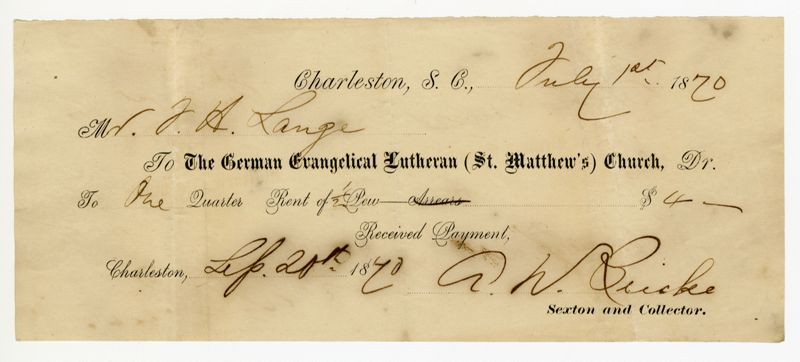 Charleston, S. C., July 1st. 1870
Mr. J. H. Lange
To The German Evangelical Lutheran (St. Matthew's) Church, Dr.
To One Quarter Rent of ½ Pew Arrears $ 4 —
Received Payment,
Charleston, Sep. 20th. 1870 W.
Sexton and Collector.